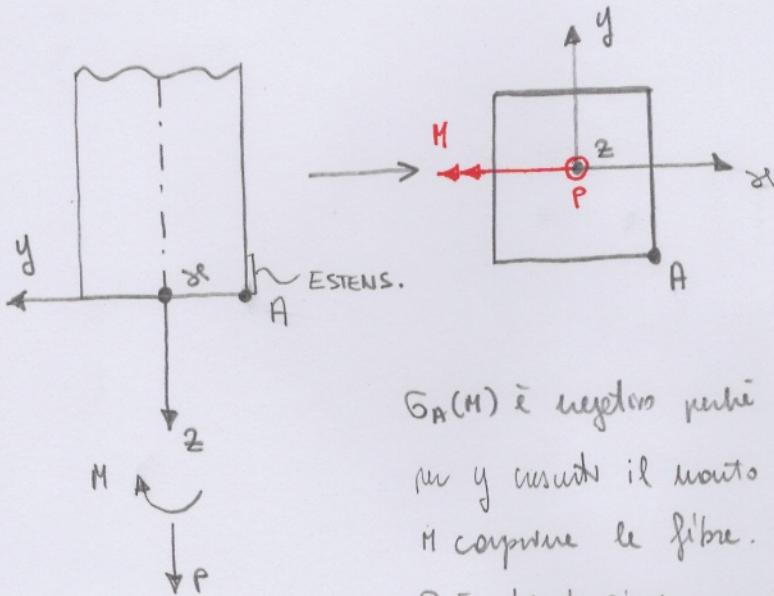 y
ESTENS.
A
x
y
z
M A
P
M
z
P
x
A
σA(M) è negativo perché
per y crescente il momento
M comprime le fibre.